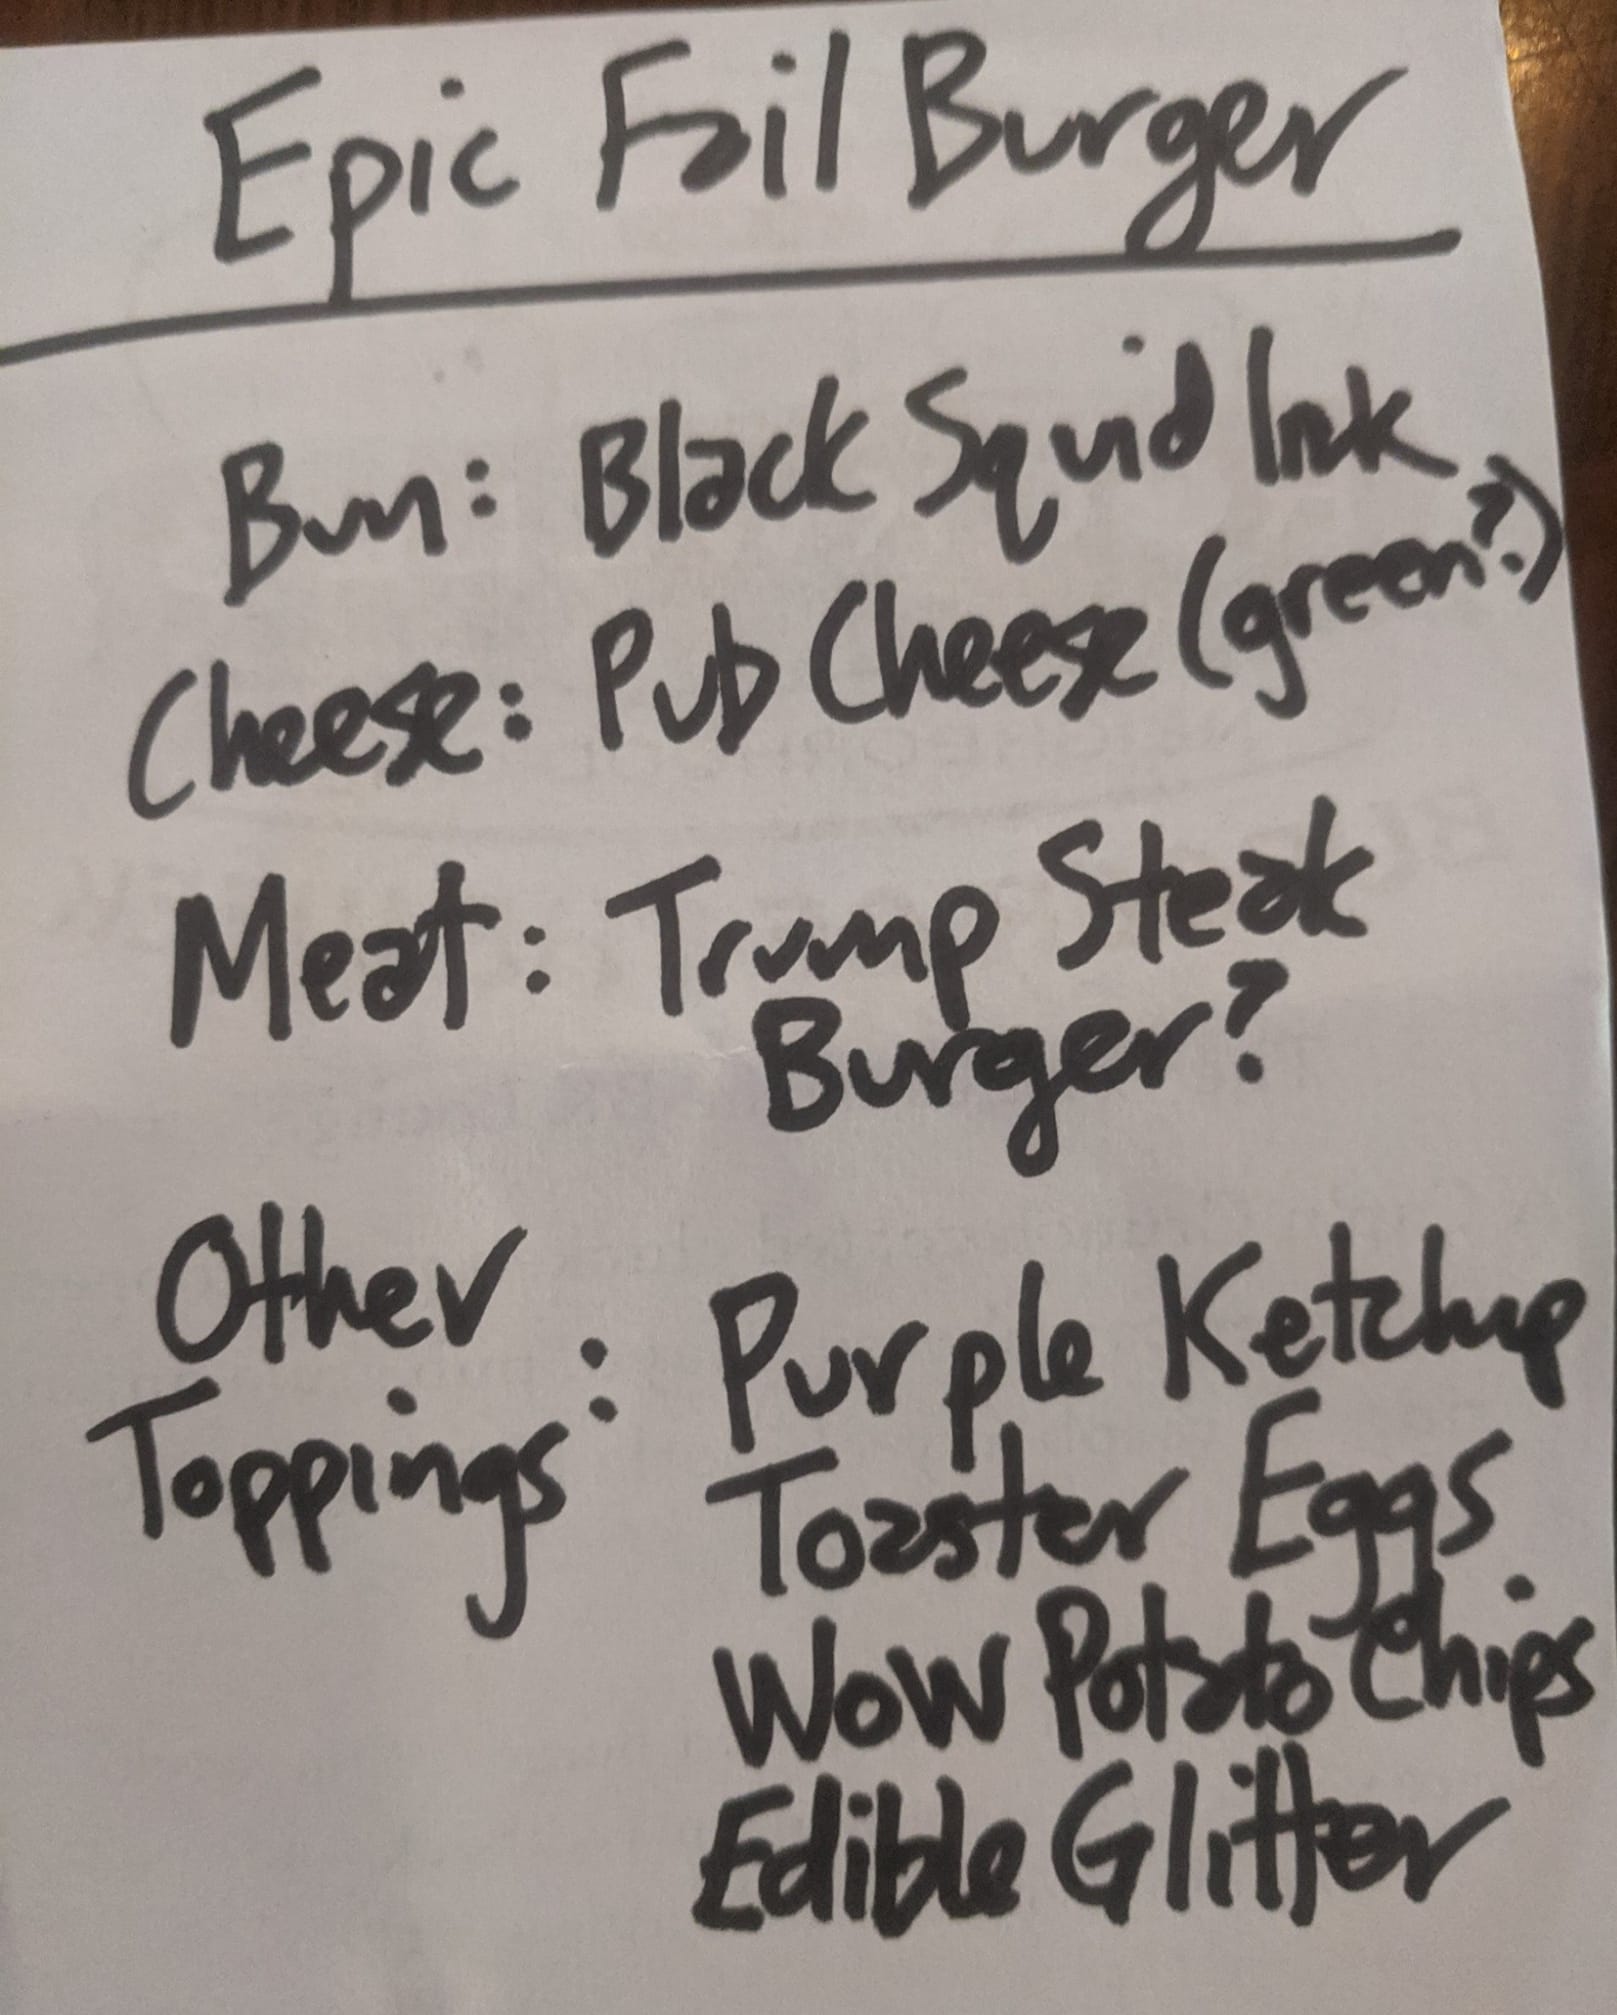 Epic Fail Burger
Bun: Black Squid Ink
Cheese: Pub Cheese (green?)
Meat: Trump Steak
Burger?
Other
Toppings: Purple Ketchup
Toaster Eggs
Wow Potato Chips
Edible Glitter